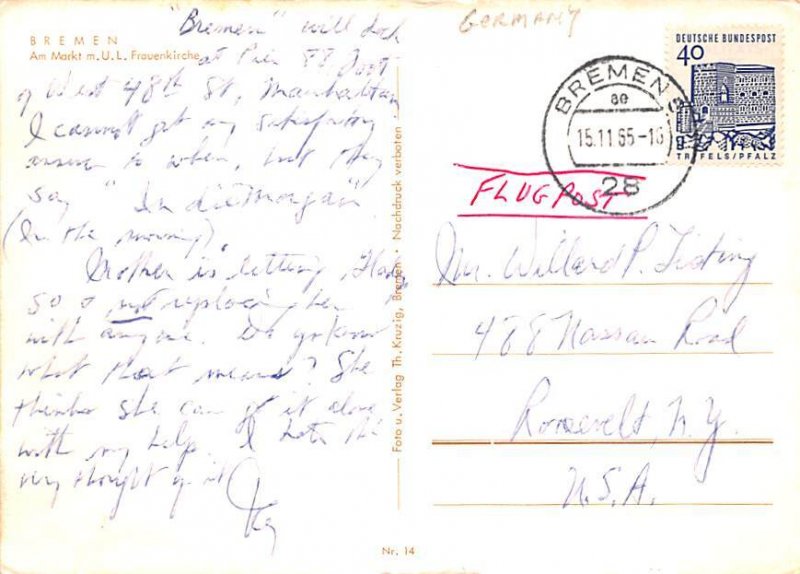 BREMEN
Am Markt m. U. L. Frauenkirche
"Bremen" will dock
at Pier 88 foot
of West 48th St, Manhattan
I cannot get any satisfactory
answer to when, but they
say "In
(In the morning)
Mother is letting
go & not replacing her
with anyone. Do you know
what that means? She
thinks she can go it alone
with my help. I hate the
very thought of it
Foto u. Verlag Th. Kruzig, Bremen · Nachdruck verboten ·
Nr. 14
GERMANY
DEUTSCHE BUNDESPOST
40
TRIFELS/PFALZ
BREMEN 5
ae
15.11.65-16
28
FLUGPOST
Mr. Willard P.
488 Nassau Road
Roosevelt, N.Y.
U.S.A.